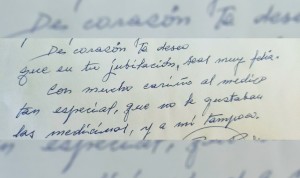 De corazón Te deseo
que en tu jubilación, seas muy feliz.
Con mucho cariño al medico
tan especial, que no le gustaban
las medicinas, y a mi tampoco.